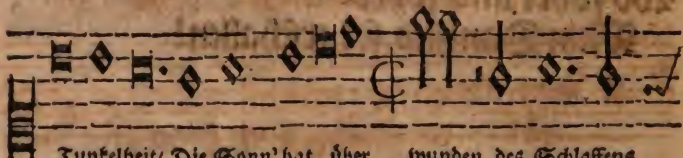 Tunkelheit/ Die Sonn' hat über wunden des Schlaffens